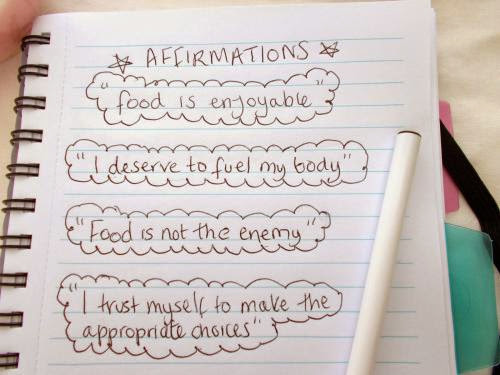 ☆ AFFIRMATIONS ☆
"food is enjoyable"
"I deserve to fuel my body"
"Food is not the enemy"
"I trust myself to make the
appropriate choices"